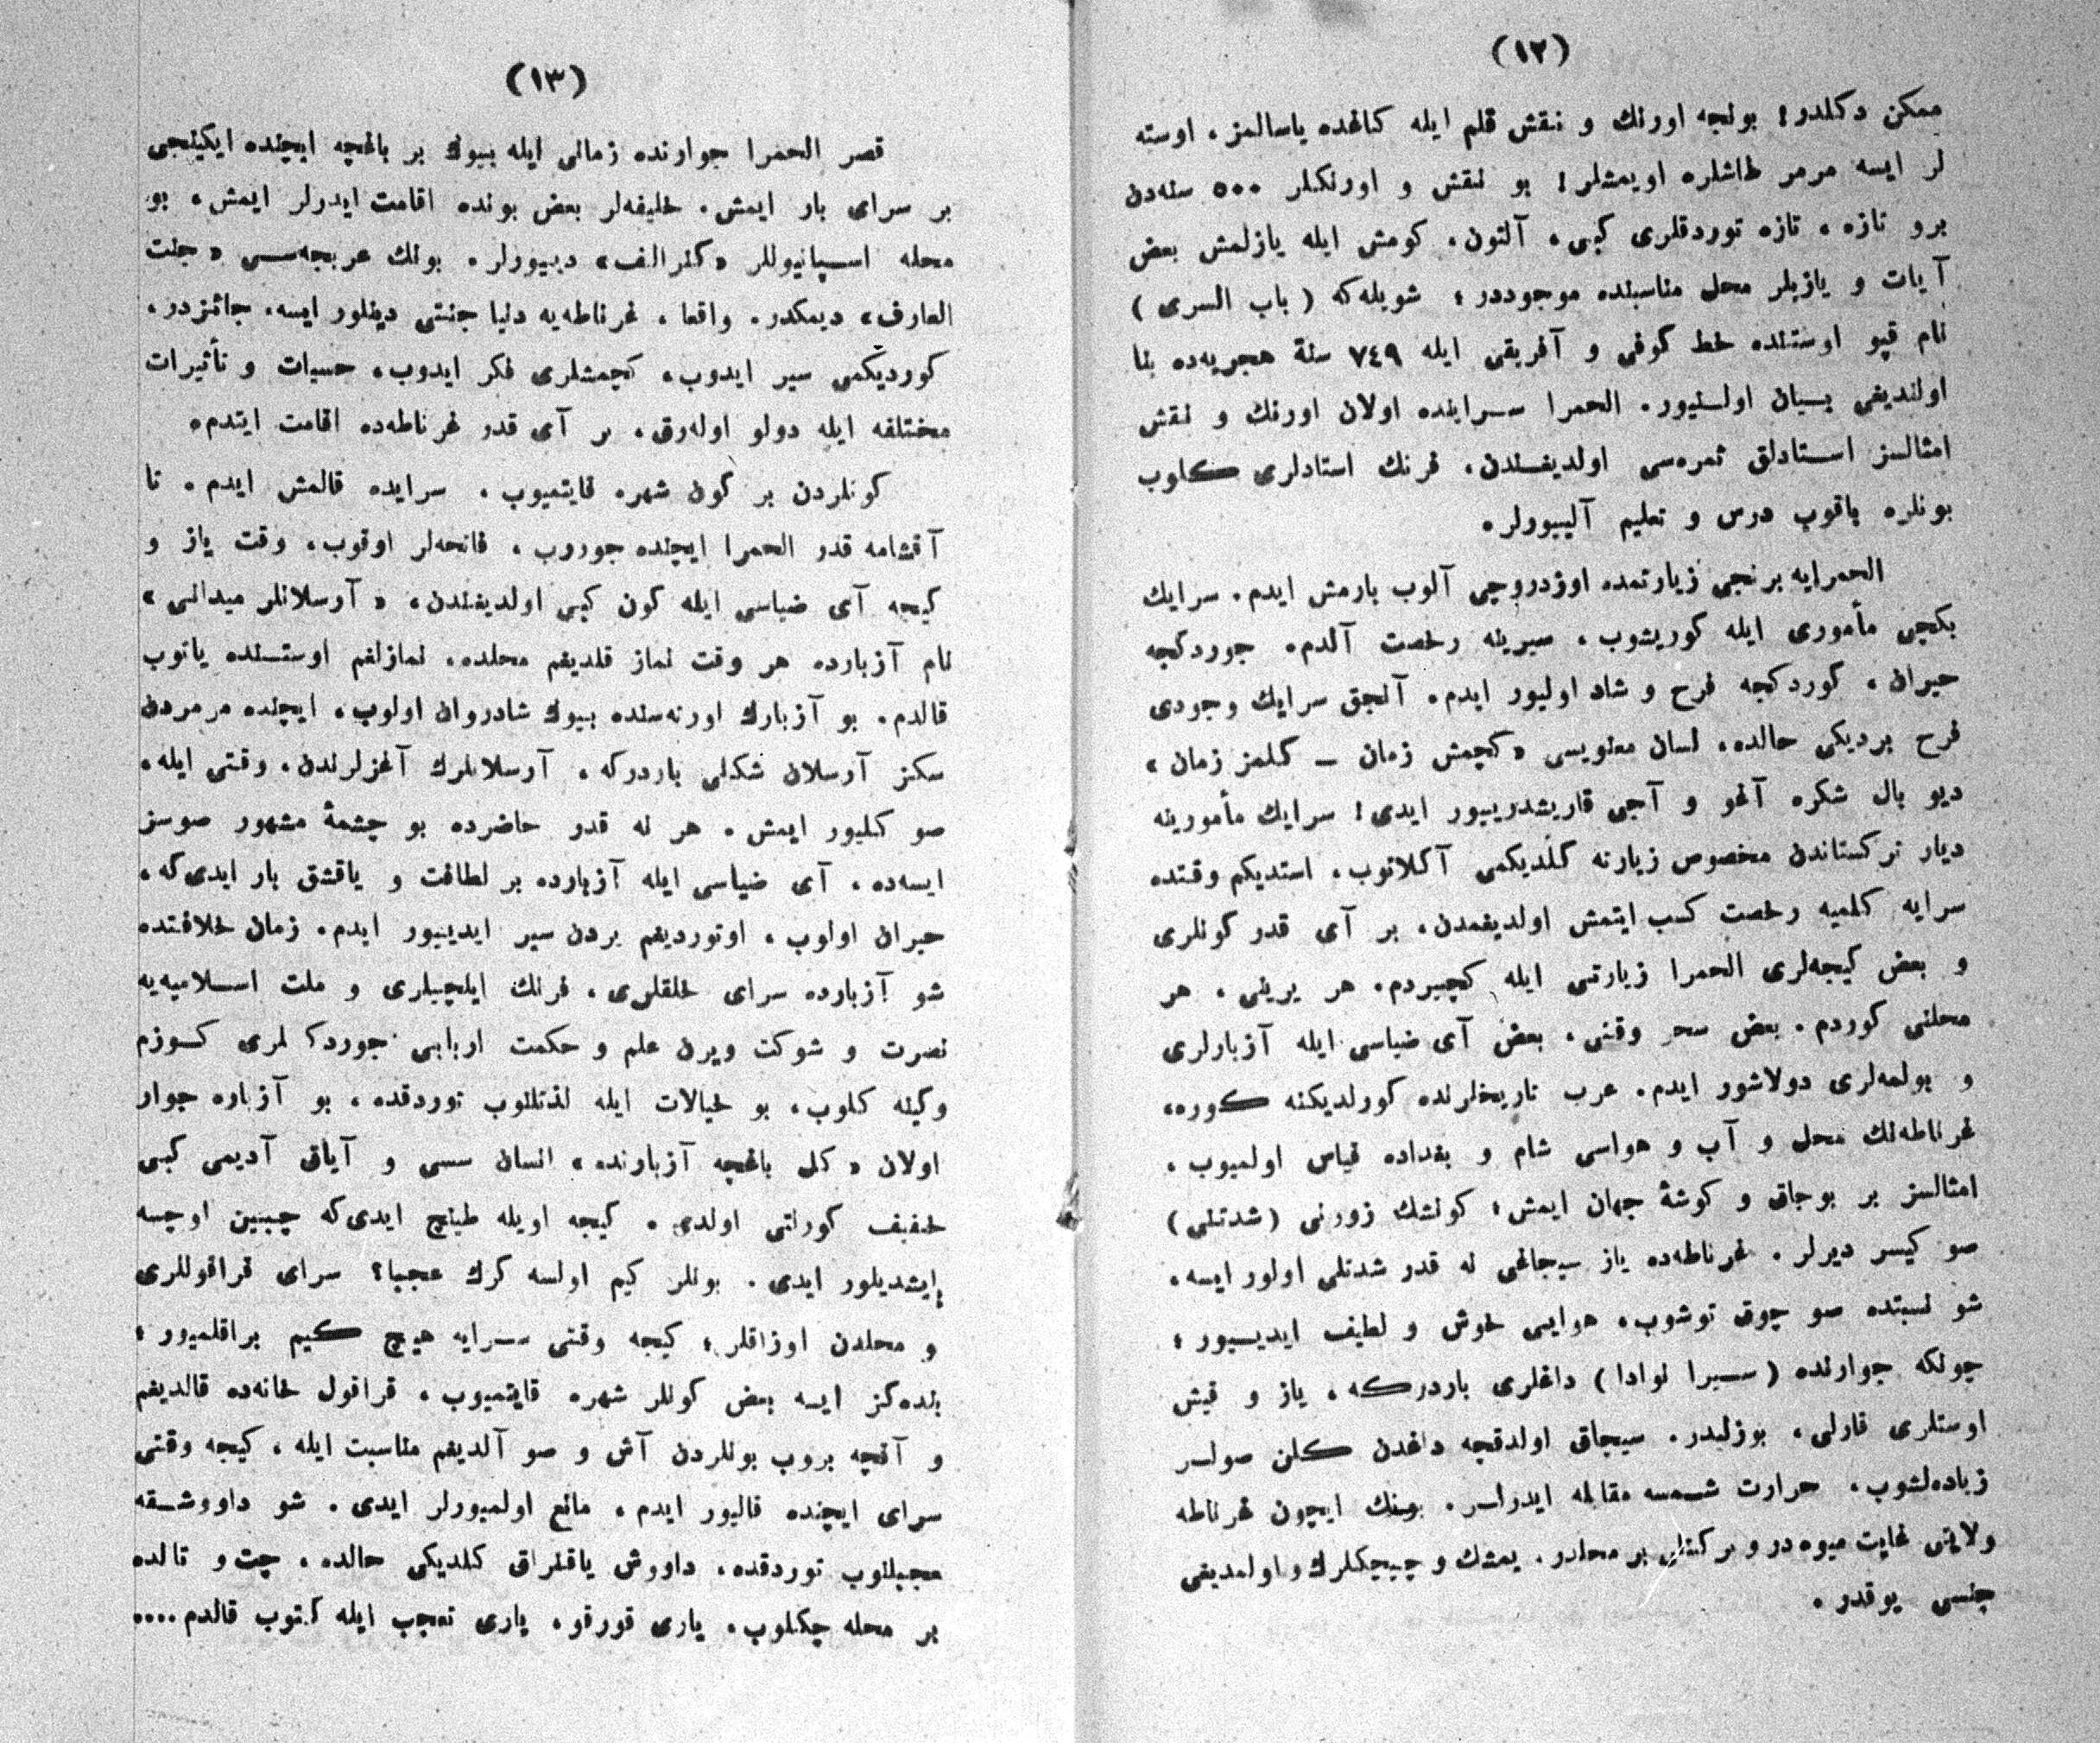 (١٢)
ممكن دكلدر! بونجه اورنك و نقش قلم ايله كاغده ياسالمز، اوسته
لر ايسه مرمر طاشلره اويمشلر! بو نقش و اورنكلر ٥٠٠ سنه‌دن
برو تازه، تازه توردقلرى كبى، آلتون، كومش ايله يازلمش بعض
آيات و يازيلر محل مناسبنده موجوددر؛ شويله‌كه (باب السرى)
نام قپو اوستنده خط كوفى و آفريقى ايله ٧٤٩ سنهٔ هجريه‌ده بنا
اولنديغى بيان اولنيور. الحمرا سراينده اولان اورنك و نقش
امثالسز استادلق ثمره‌سى اولديغندن، فرنك استادلرى كلوب
بونلره باقوب درس و تعليم آليبورلر.
الحمرايه برنجى زيارتمده اوزدروجى آلوب بارمش ايدم. سرايك
بكجى مأمورى ايله كوريشوب، سيرينه رخصت آلدم. جوردكجه
حيران، كوردكجه فرح و شاد اوليور ايدم. آنجق سرايك وجودى
فرح برديكى حالده، لسان معنويسى «كچمش زمان – كلمز زمان»
ديو بال شكره آغو و آجى قاريشدريبيور ايدى! سرايك مأمورينه
ديار تركستاندن مخصوص زيارته كلديكمى آكلاتوب، استديكم وقتده
سرايه كلميه رخصت كسب ايتمش اولديغمدن، بر آى قدر كونلرى
و بعض كيجه‌لرى الحمرا زيارتى ايله كچيردم. هر يرينى، هر
محلنى كوردم. بعض سحر وقتى، بعض آى ضياسى ايله آزبارلرى
و بولمه‌لرى دولاشور ايدم. عرب تاريخلرنده كورلديكنه كوره،
غرناطه‌نك محل و آب و هواسى شام و بغداده قياس اولميوب،
امثالسز بر بوجاق و كوشهٔ جهان ايمش؛ كونشك زورنى (شدتنى)
صو كيسر ديرلر. غرناطه‌ده ياز سيجاغى نه قدر شدتلى اولور ايسه،
شو نسبتده صو چوق توشوب، هوايى خوش و لطيف ايديبيور؛
چونكه جوارنده (سيرا نوادا) داغلرى باردركه، ياز و قيش
اوستلرى قارلى، بوزليدر. سيجاق اولدقجه داغدن كلن صولر
زياده‌لشوب، حرارت شمسه مقابله ايدرلر. بونك ايچون غرناطه
ولايتى غايت ميوه‌در و بركتلى بر محلدر. يمشك و چيچكلرك و اولمديغى
جنسى يوقدر.
(١٣)
قصر الحمرا جوارنده زمانى ايله بيوك بر باغچه ايچنده ايكينجى
بر سراى بار ايمش. خليفه‌لر بعض بونده اقامت ايدرلر ايمش، بو
محله اسپانيوللر «كنرالف» دييورلر. بونك عربجه‌سى «جنت
العارف» ديمكدر. واقعا، غرناطه‌يه دنيا جنتى دينلور ايسه، جائزدر.
كورديكمى سير ايدوب، كچمشلرى فكر ايدوب، حسيات و تأثيرات
مختلفه ايله دولو اوله‌رق، بر آى قدر غرناطه‌ده اقامت ايتدم.
كونلردن بر كون شهره قايتميوب، سرايده قالمش ايدم. تا
آقشامه قدر الحمرا ايچنده جوروب، فاتحه‌لر اوقوب، وقت ياز و
كيجه آى ضياسى ايله كون كبى اولديغندن، «آرسلانلر ميدانى»
نام آزبارده هر وقت نماز قلديغم محلده، نمازلغم اوستنده ياتوب
قالدم. بو آزبارك اورته‌سنده بيوك شادروان اولوب، ايچنده مرمردن
سكز آرسلان شكلى باردركه، آرسلانلرك آغزلرندن، وقتى ايله،
صو كليور ايمش. هر نه قدر حاضرده بو چشمهٔ مشهور صوسز
ايسه‌ده، آى ضياسى ايله آزبارده بر لطافت و ياقشق بار ايدى‌كه،
حيران اولوب، اوتورديغم يردن سير ايدييور ايدم. زمان خلافتده
شو آزبارده سراى خلقلرى، فرنك ايلچيلرى و ملت اسلاميه‌يه
نصرت و شوكت ويرن علم و حكمت اربابى جوردكلرى كوزم
وكينه كلوب، بو خيالات ايله لذتلنوب توردقده، بو آزباره جوار
اولان «كل باغچه آزبارنده» انسان سسى و آياق آديمى كبى
خفيف كورلتى اولدى. كيجه اويله طينچ ايدى‌كه چيبين اوچسه
ايشديلور ايدى. بونلر كيم اولسه كرك عجبا؟ سراى قراقوللرى
و محلدن اوزاقلر؛ كيجه وقتى سرايه هيچ كيم براقلميور؛
بنده‌كز ايسه بعض كونلر شهره قايتميوب، قراقول خانه‌ده قالديغم
و آقچه بروب بونلردن آش و صو آلديغم مناسبت ايله، كيجه وقتى
سراى ايچنده قاليور ايدم، مانع اولميورلر ايدى. شو داووشقه
عجبلنوب توردقده، داووش ياقنراق كلديكى حالده، چت و تالده
بر محله چكلوب، يارى قورقو، يارى تعجب ايله كتوب قالدم....